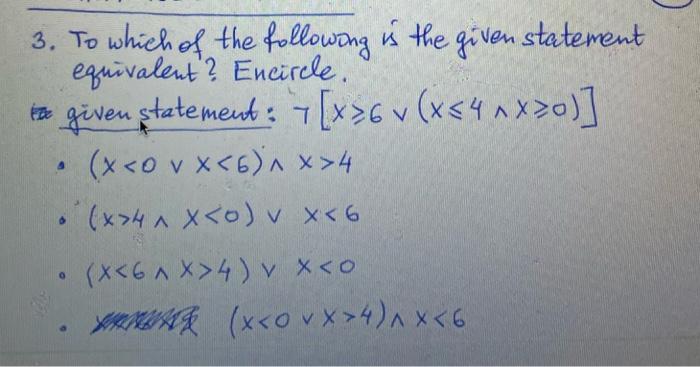 3. To which of the following is the given statement
equivalent? Encircle.
given statement: ¬[x≥6 ∨ (x≤4 ∧ x≥0)]
• (x<0 ∨ x<6) ∧ x>4
• (x>4 ∧ x<0) ∨ x<6
• (x<6 ∧ x>4) ∨ x<0
• (x<0 ∨ x>4) ∧ x<6